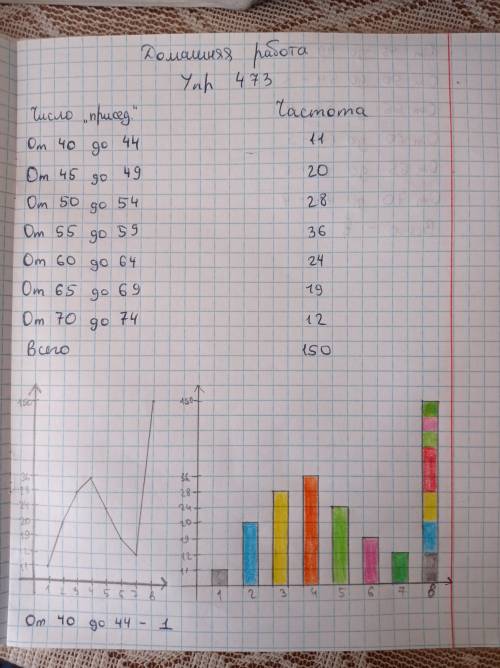 Домашняя работа
Упр 473
Число „присед" Частота
От 40 до 44 11
От 45 до 49 20
От 50 до 54 28
От 55 до 59 36
От 60 до 64 24
От 65 до 69 19
От 70 до 74 12
Всего 150
150 150
36 36
28 28
24 24
20 20
19 19
12 12
11 11
1 2 3 4 5 6 7 8 1 2 3 4 5 6 7 8
От 40 до 44 - 1